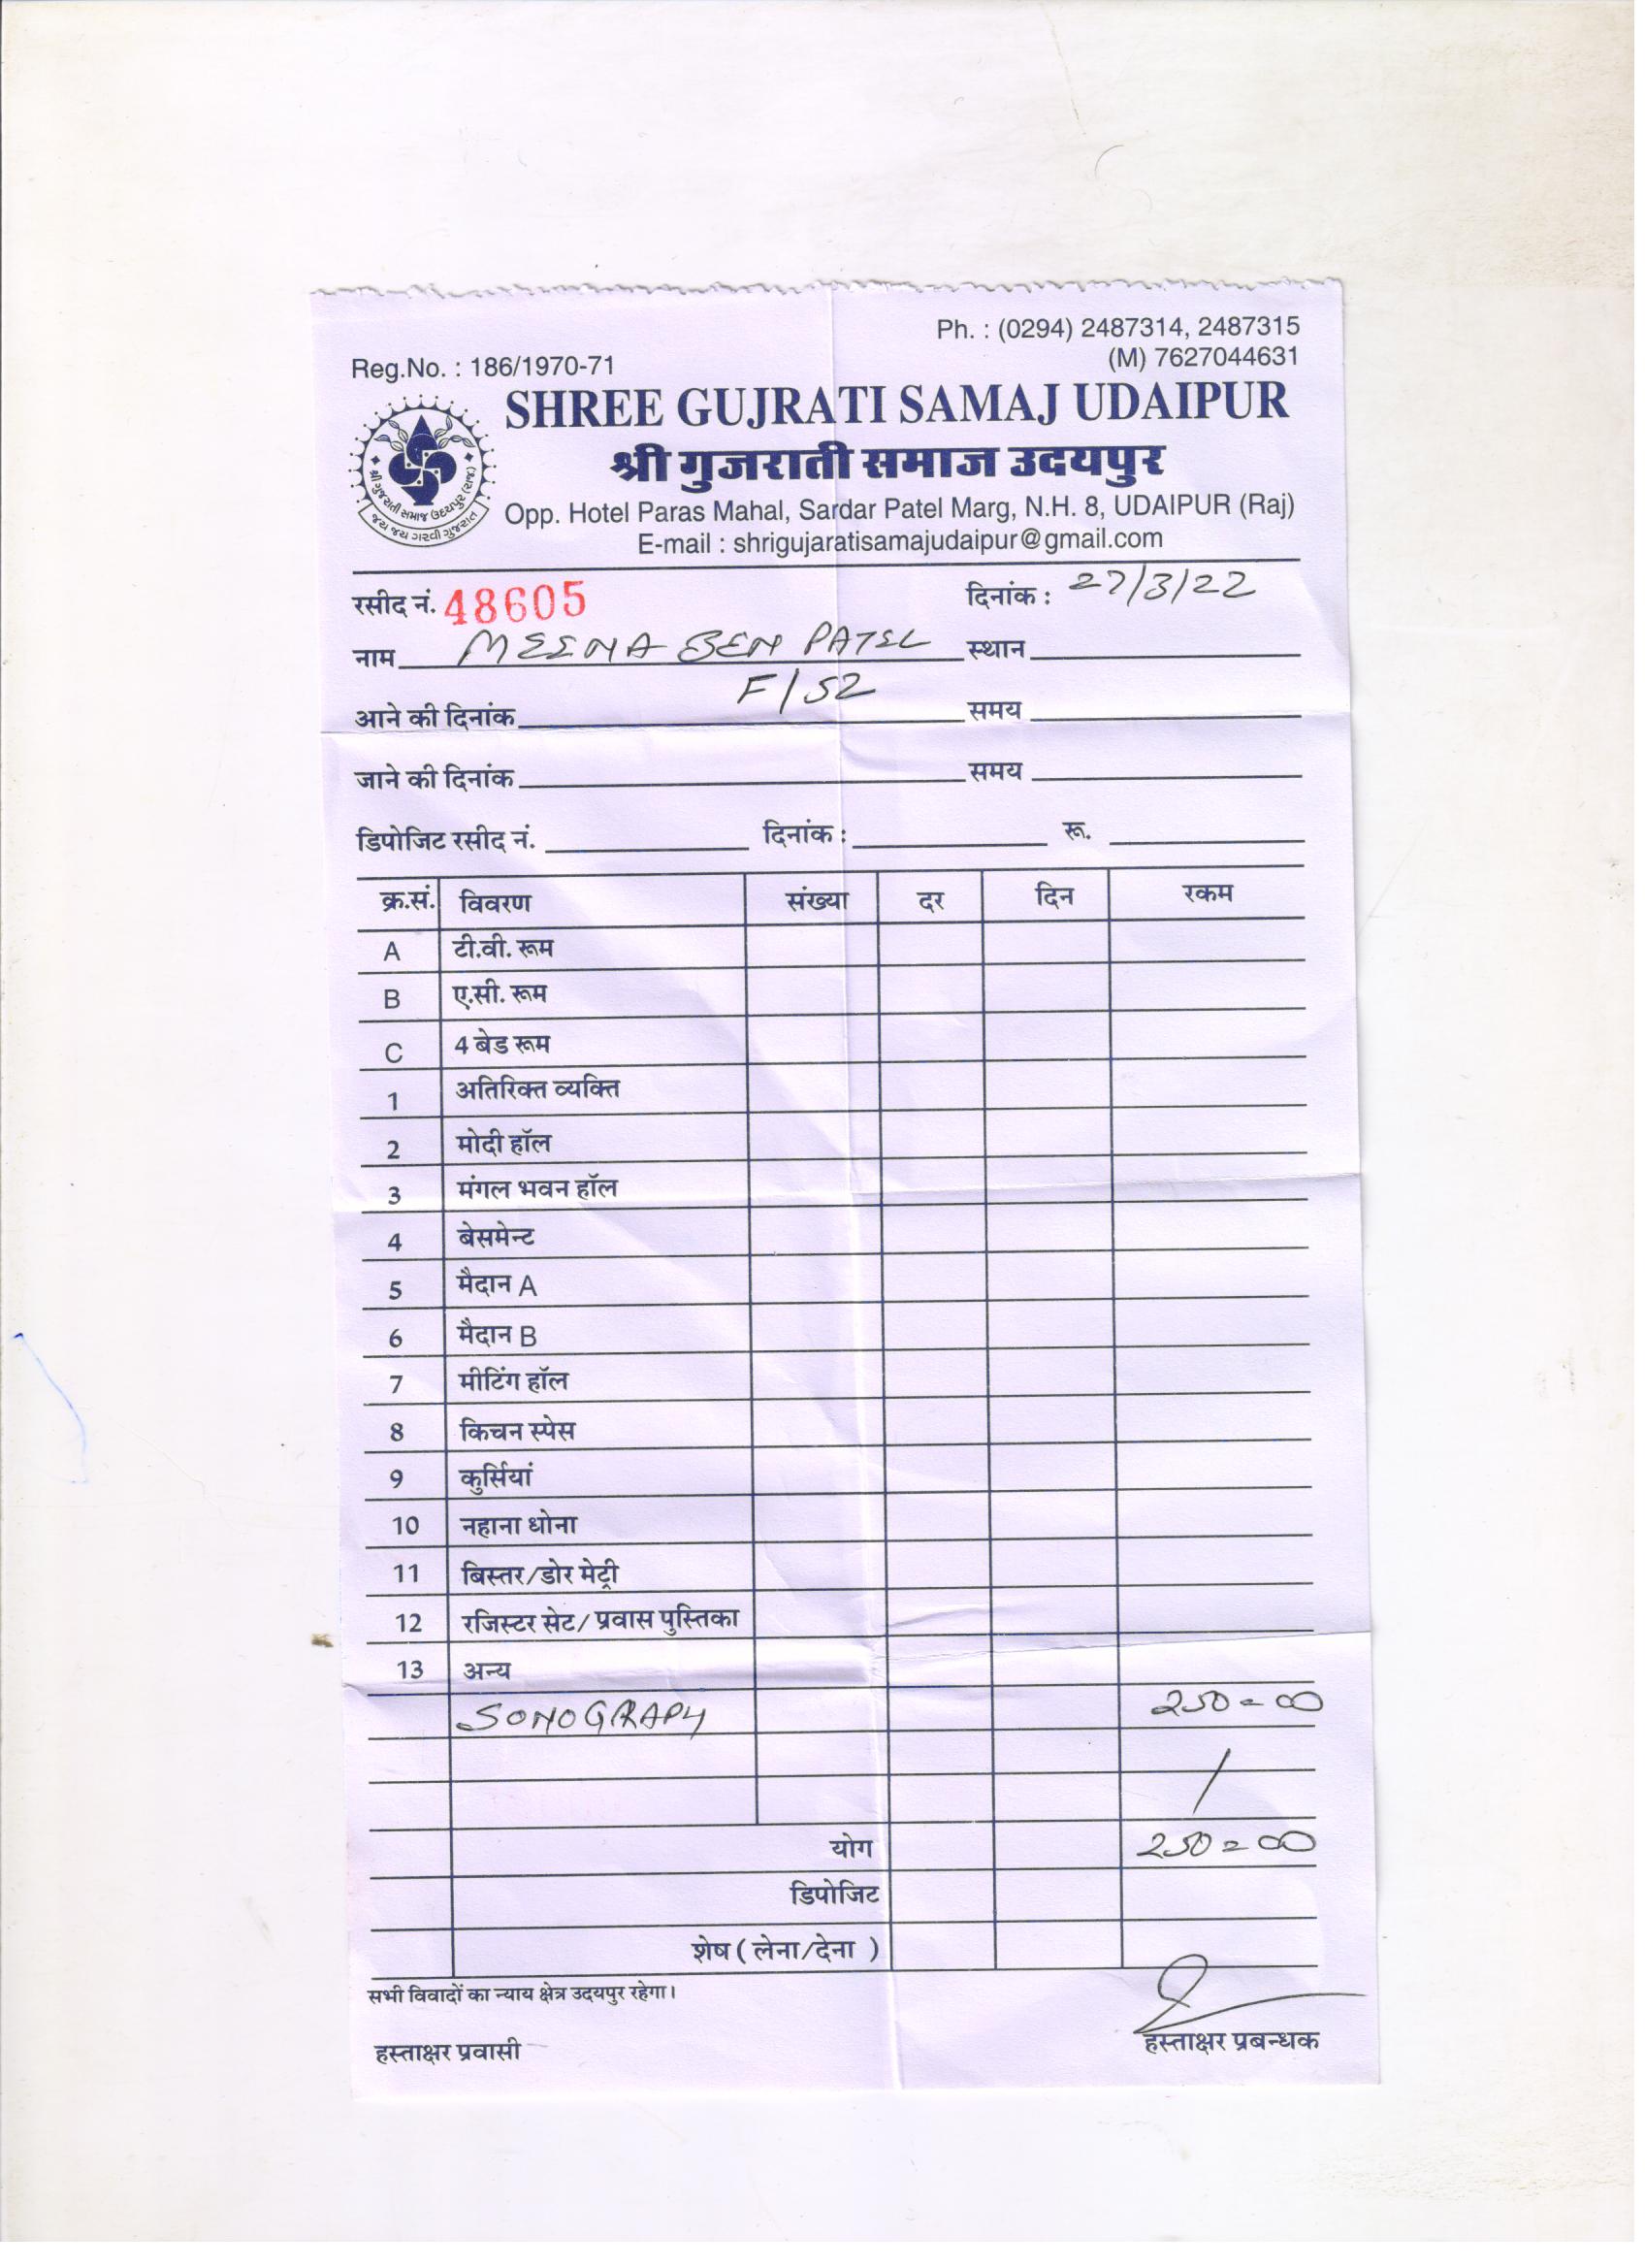 Ph. : (0294) 2487314, 2487315
Reg.No. : 186/1970-71 (M) 7627044631
SHREE GUJRATI SAMAJ UDAIPUR
श्री गुजराती समाज उदयपुर
શ્રી ગુજરાતી સમાજ ઉદયપુર (રાજ)
જય જય ગરવી ગુજરાત
Opp. Hotel Paras Mahal, Sardar Patel Marg, N.H. 8, UDAIPUR (Raj)
E-mail : shrigujaratisamajudaipur@gmail.com
रसीद नं. 48605 दिनांक : 27/3/22
नाम MEENA BEN PATEL स्थान
F/52
आने की दिनांक समय
जाने की दिनांक समय
डिपोजिट रसीद नं. दिनांक : रू.
क्र.सं. विवरण संख्या दर दिन रकम
A टी.वी. रूम
B ए.सी. रूम
C 4 बेड रूम
1 अतिरिक्त व्यक्ति
2 मोदी हॉल
3 मंगल भवन हॉल
4 बेसमेन्ट
5 मैदान A
6 मैदान B
7 मीटिंग हॉल
8 किचन स्पेस
9 कुर्सियां
10 नहाना धोना
11 बिस्तर/डोर मेट्री
12 रजिस्टर सेट/ प्रवास पुस्तिका
13 अन्य
SONOGRAPY 250=00
/
योग 250=00
डिपोजिट
शेष ( लेना/देना )
सभी विवादों का न्याय क्षेत्र उदयपुर रहेगा।
हस्ताक्षर प्रवासी हस्ताक्षर प्रबन्धक